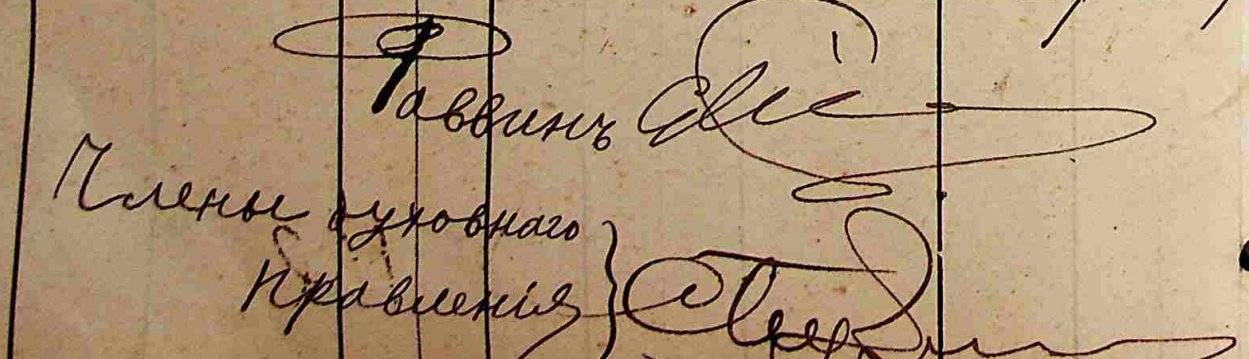 Раввинъ
Члены духовнаго
Правленія